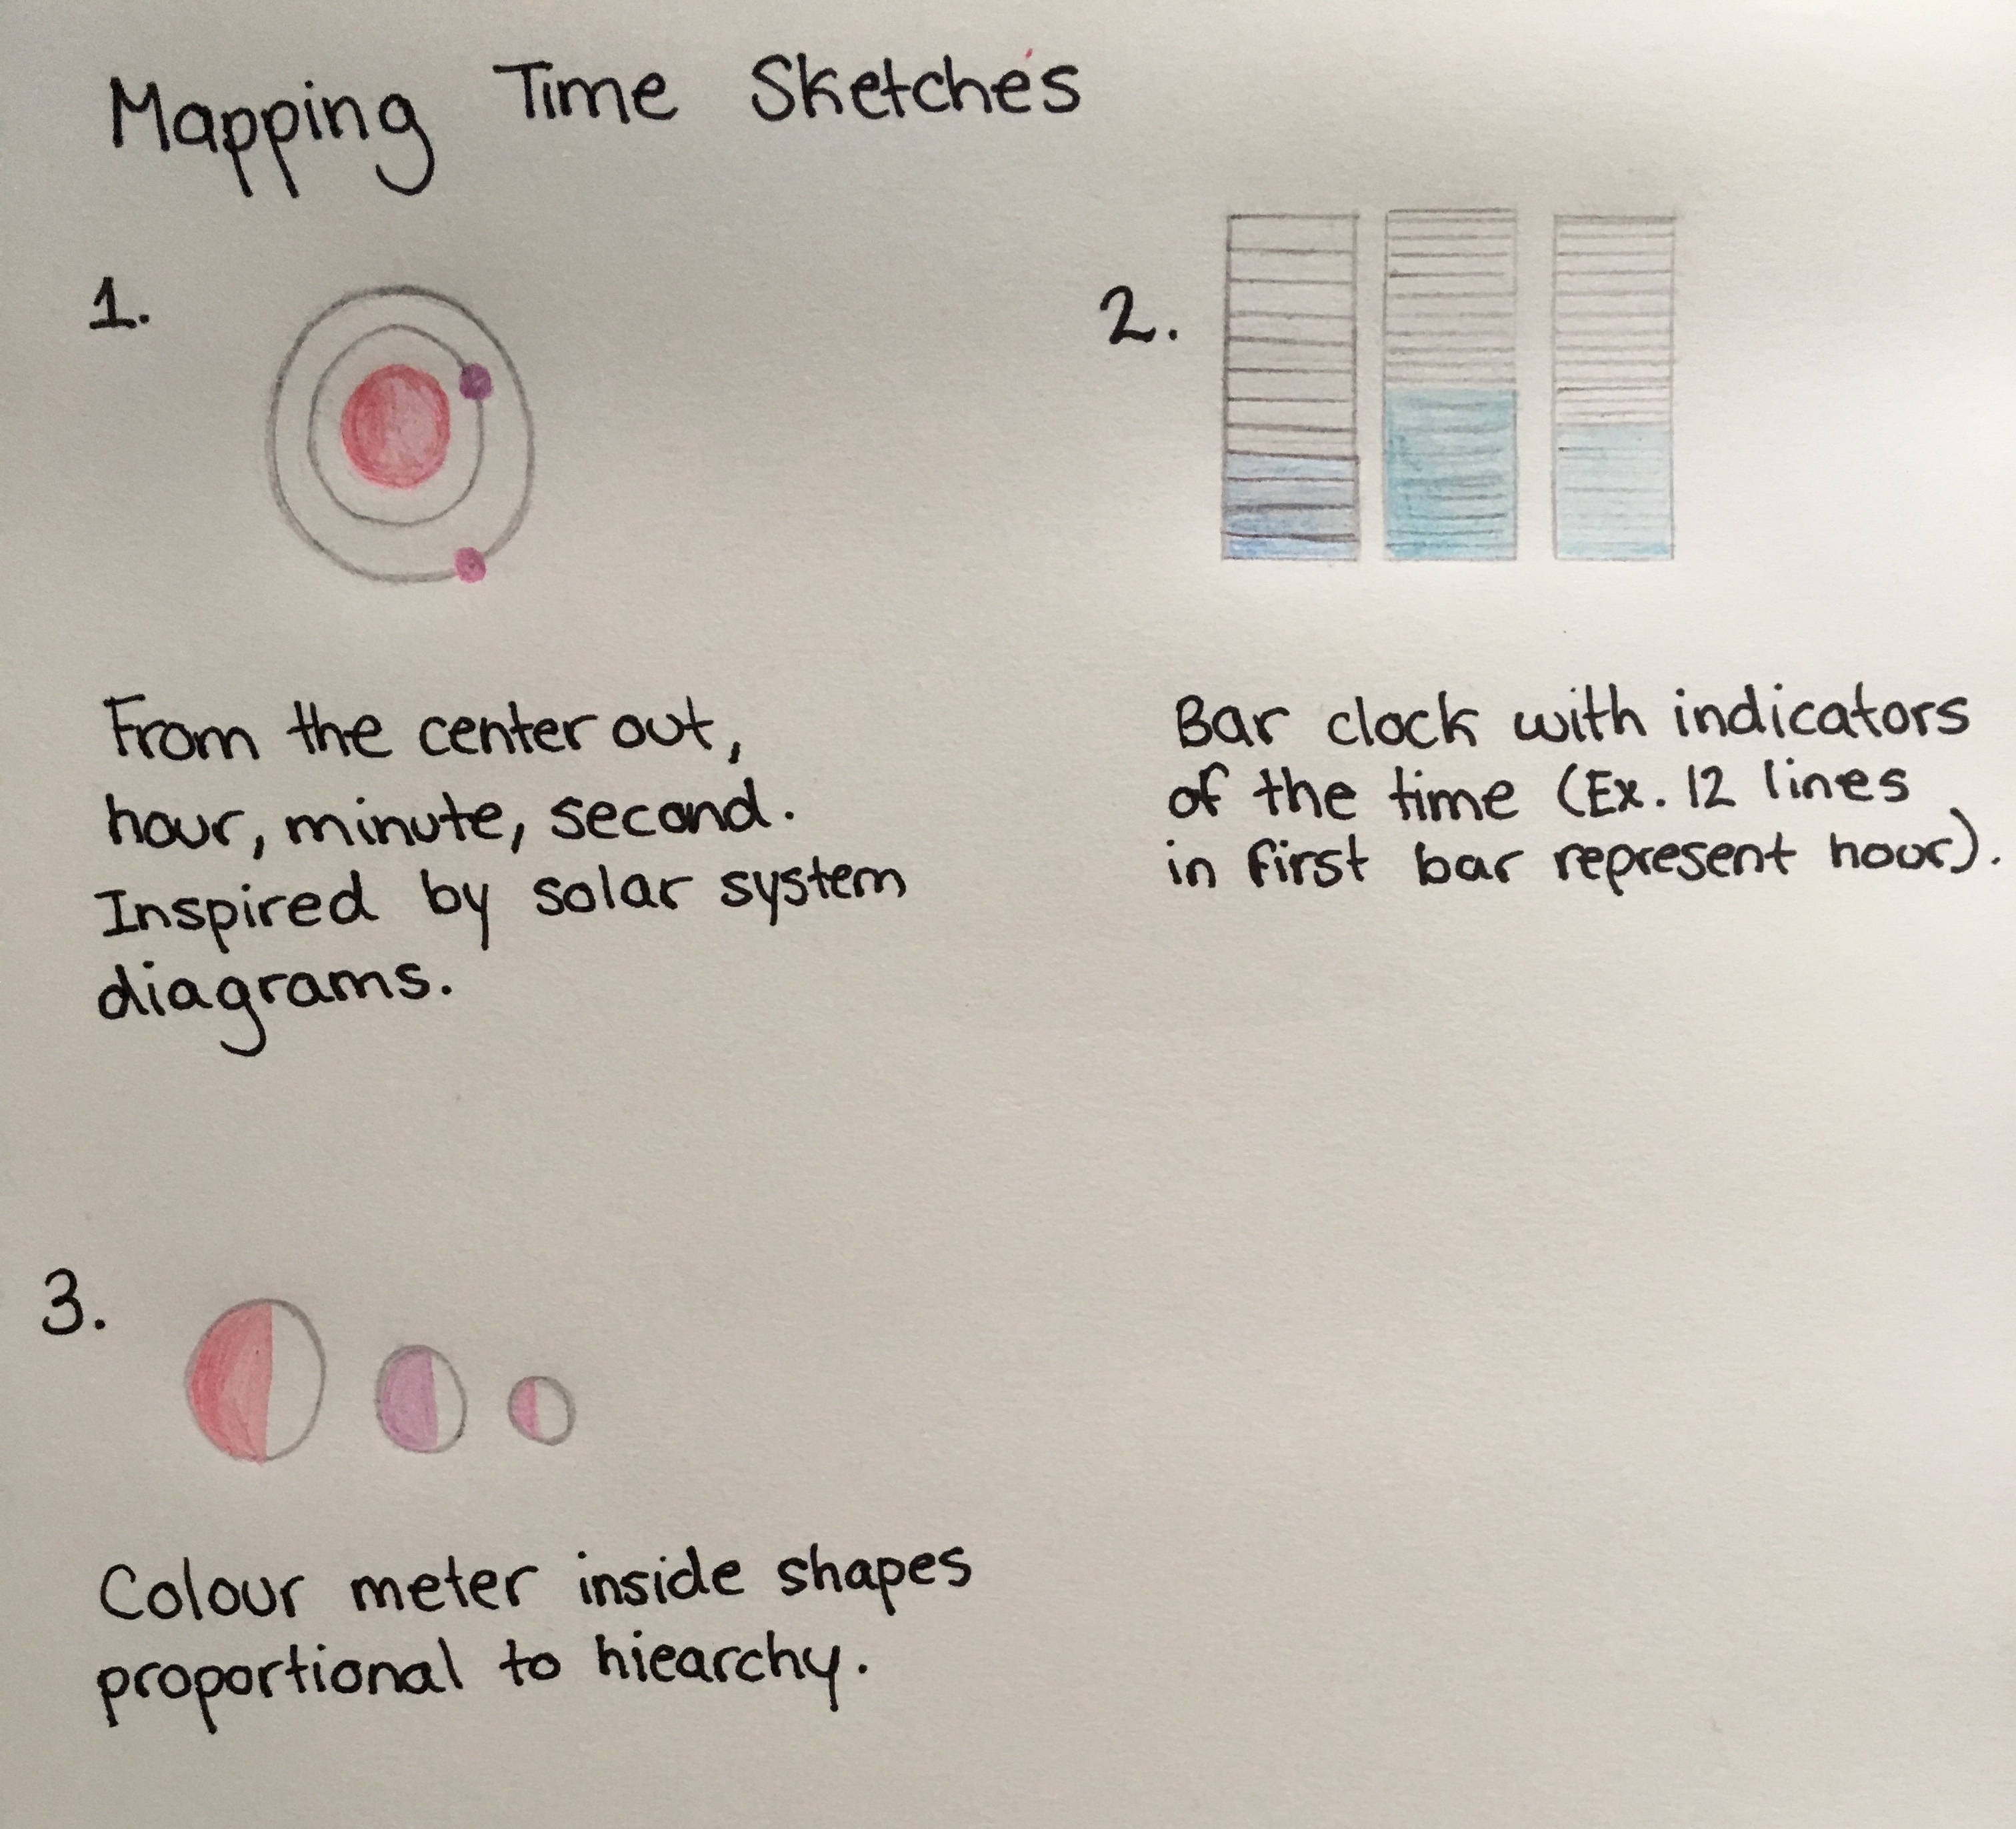 Mapping Time Sketches
1.
From the center out,
hour, minute, second.
Inspired by solar system
diagrams.
2.
Bar clock with indicators
of the time (Ex. 12 lines
in first bar represent hour).
3.
Colour meter inside shapes
proportional to hiearchy.